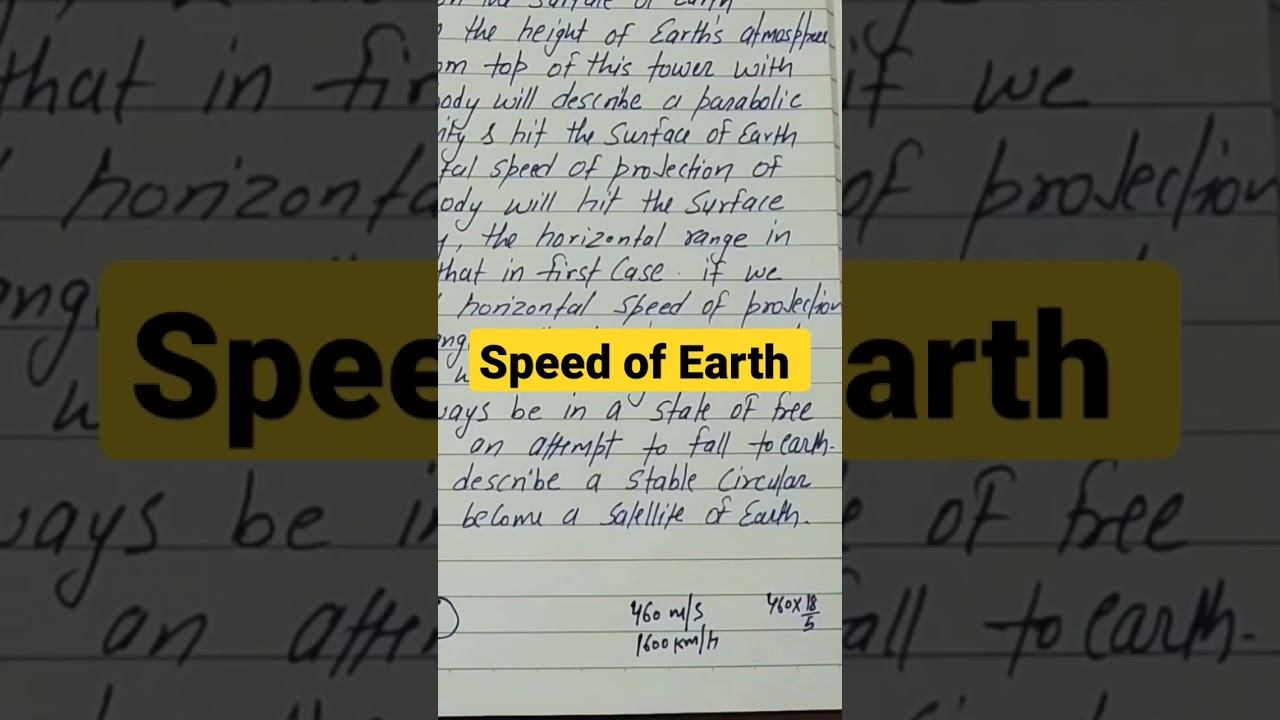 the height of Earth's atmosphere
om top of this tower with
ody will describe a parabolic
ity & hit the surface of Earth
tal speed of projection of
ody will hit the surface
, the horizontal range in
that in first Case. if we
horizontal speed of projection
ang
Speed of Earth
ways be in a state of free
an attempt to fall to earth.
describe a stable Circular
become a satellite of Earth.
460 m/s 460x18/5
1600 km/h